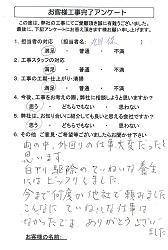 お客様工事完了アンケート
この度は、弊社の工事にてご愛顧頂き誠に有難うございました。
弊社では、下記アンケートにお答え頂きます様お願い申し上げます。
1. 担当者の対応 (担当者名:
満足 ・ 普通 ・ 不満
2. 工事スタッフの対応
満足 ・ 普通 ・ 不満
3. 工事の工期・仕上がり・清掃
満足 ・ 普通 ・ 不満
4. 今後、工事をお考えの際、弊社に相談しようと思いますか?
思う どちらでもない ・ 思わない
5. 弊社を、お知り合いに紹介しても良いと思える会社ですか?
思う どちらでもない ・ 思わない
6. その他 ご意見・ご希望等ございましたらお聞かせ下さい
雨の中、外回りの仕事大変だったと
思います。
白アリ駆除のていねいな養生
にはビックリしました
今まで何度か他社で頼みました
こんなにていねいな仕事は
なかったです。ありがとうござい
ました
お客様のお名前